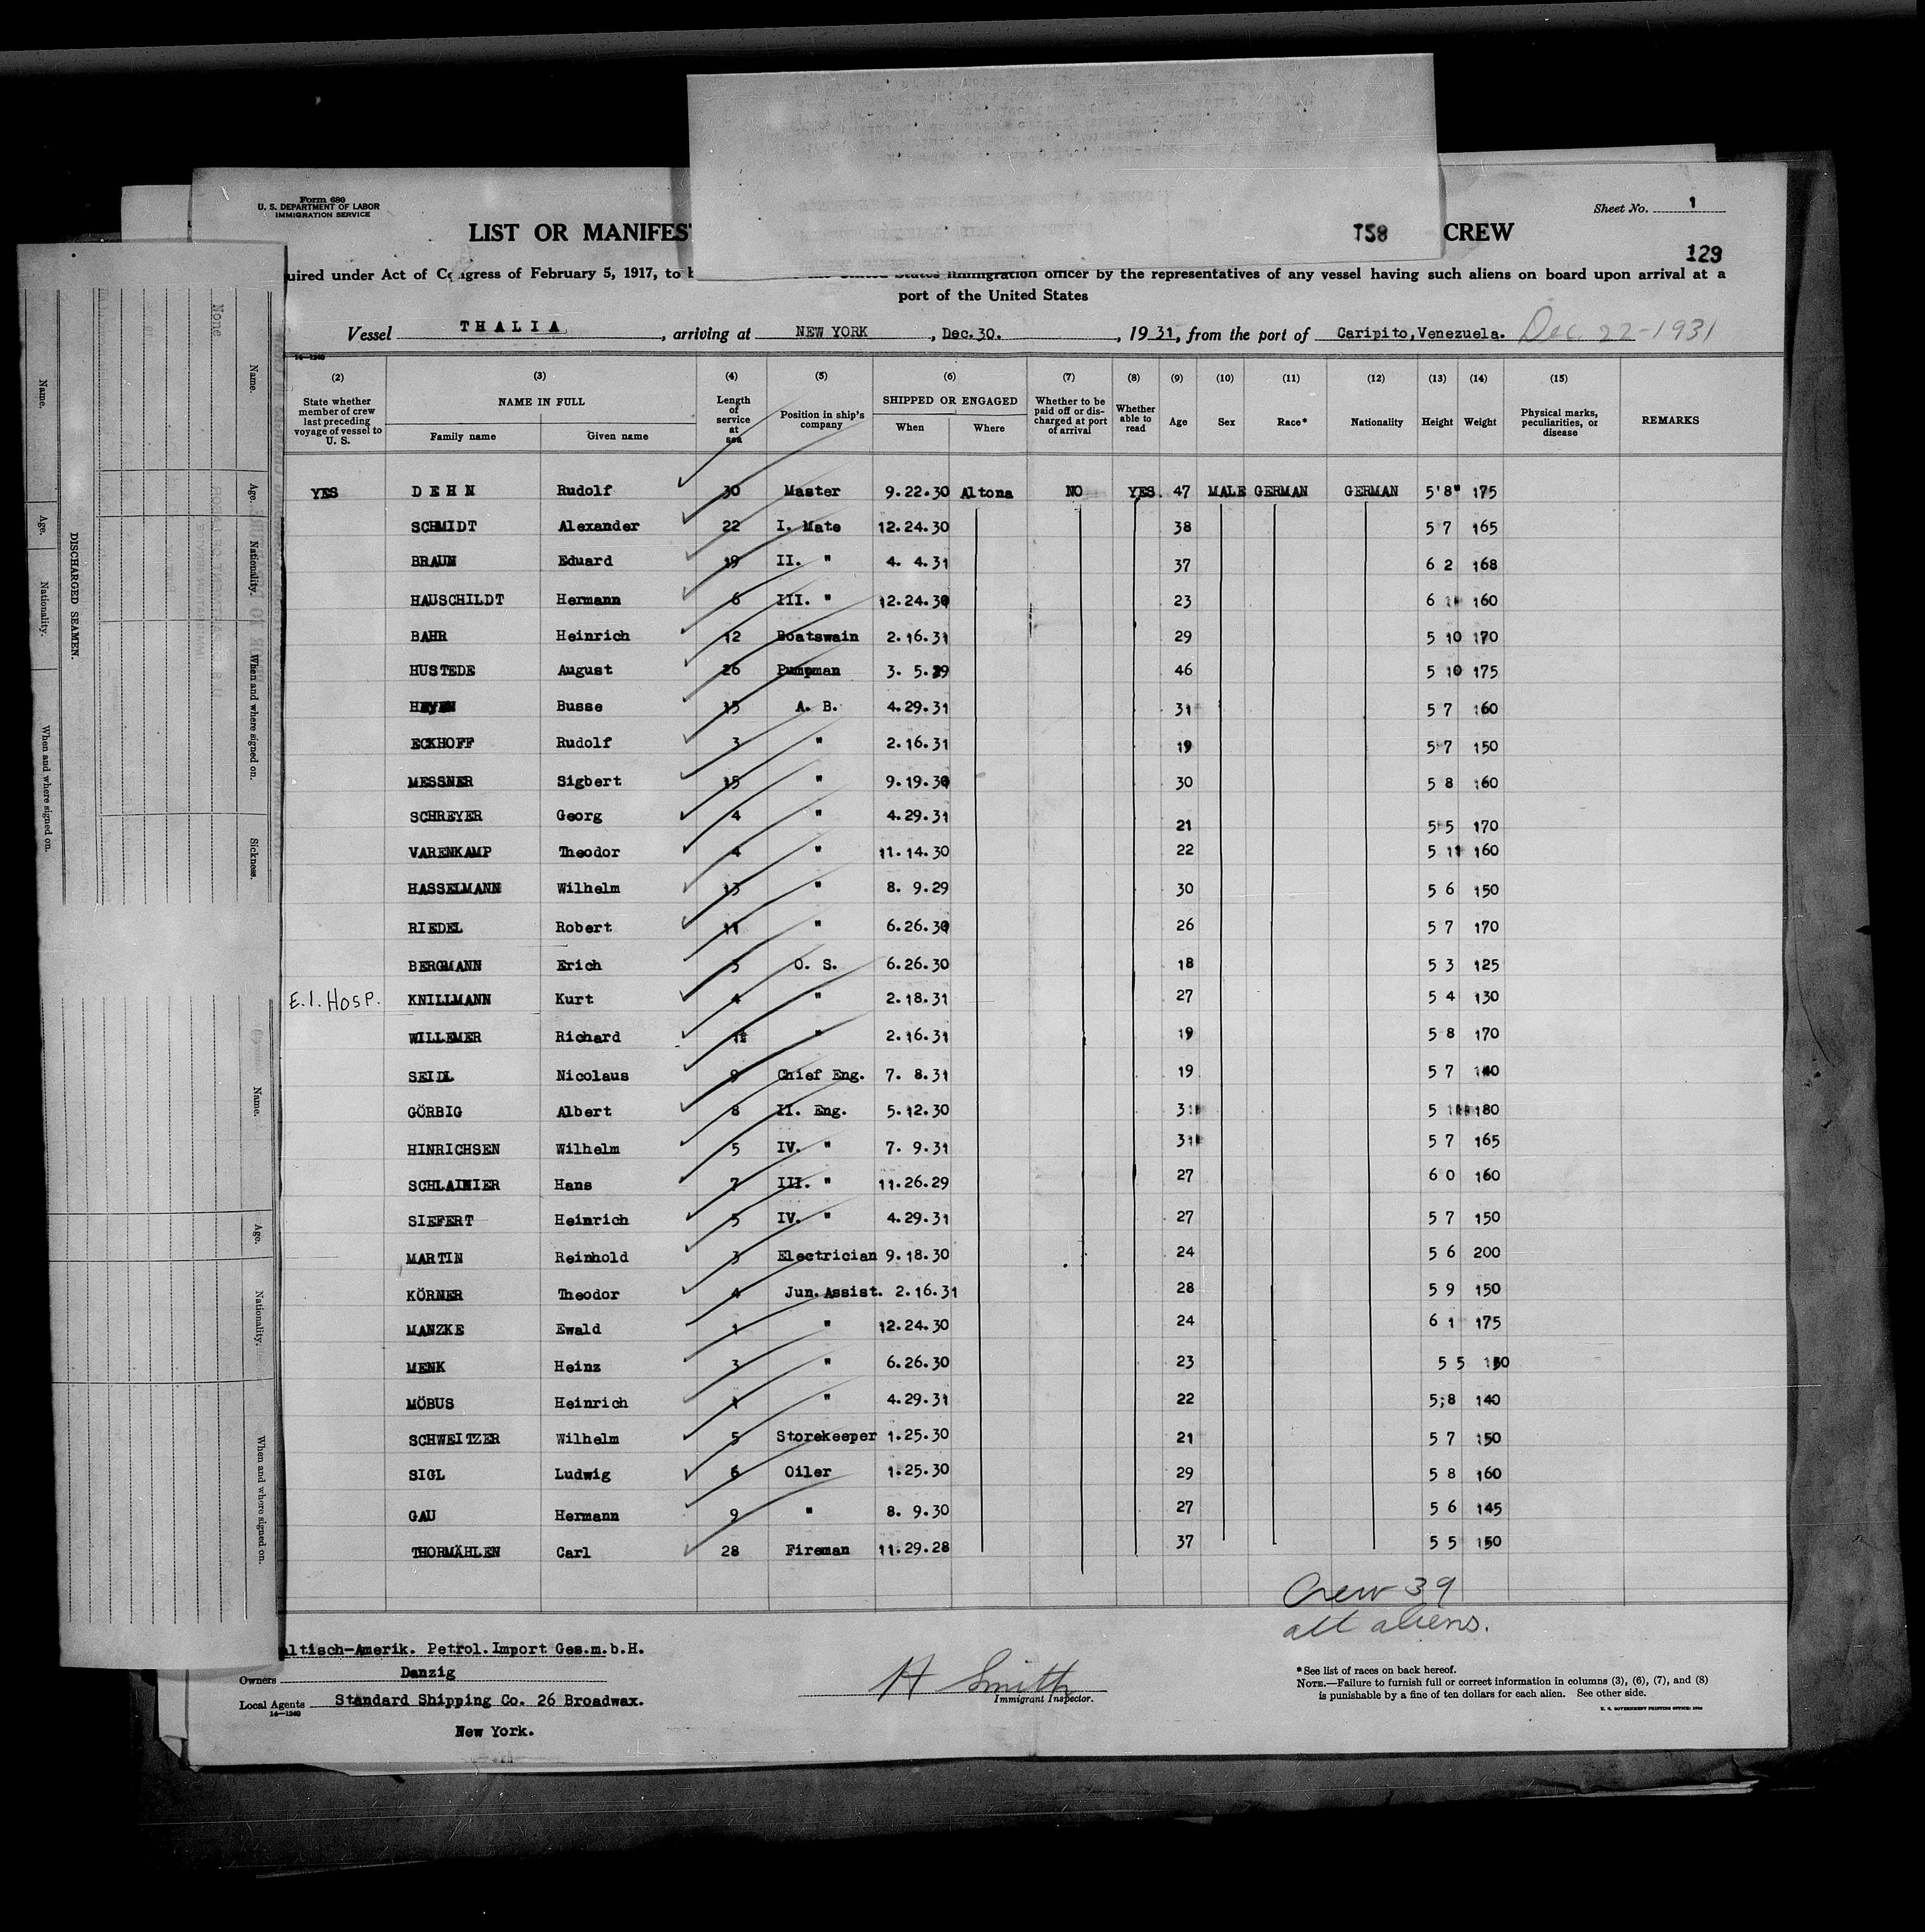 Form 680
U. S. DEPARTMENT OF LABOR
IMMIGRATION SERVICE
Sheet No. 1
LIST OR MANIFEST 158 CREW
129
uired under Act of Congress of February 5, 1917, to b United States immigration officer by the representatives of any vessel having such aliens on board upon arrival at a
port of the United States
Vessel THALIA, arriving at NEW YORK, Dec.30., 1931, from the port of Caripito,Venezuela. Dec 22-1931
14—1240
(2) (3) (4) (5) (6) (7) (8) (9) (10) (11) (12) (13) (14) (15)
State whether member of crew last preceding voyage of vessel to U. S. | NAME IN FULL | Family name | Given name | Length of service at sea | Position in ship's company | SHIPPED OR ENGAGED | When | Where | Whether to be paid off or discharged at port of arrival | Whether able to read | Age | Sex | Race* | Nationality | Height | Weight | Physical marks, peculiarities, or disease | REMARKS
YES DEHN Rudolf 30 Master 9.22.30 Altona NO YES. 47 MALE GERMAN GERMAN 5'8" 175
SCHMIDT Alexander 22 I. Mate 12.24.30 38 5 7 165
BRAUN Eduard 19 II. " 4. 4.31 37 6 2 168
HAUSCHILDT Hermann 6 III. " 12.24.30 23 6 160
BAHR Heinrich 12 Boatswain 2.16.31 29 5 10 170
HUSTEDE August 26 Pumpman 3. 5.29 46 5 10 175
HEYEN Busse 15 A. B. 4.29.31 31 5 7 160
ECKHOFF Rudolf 3 " 2.16.31 19 5 7 150
MESSNER Sigbert 15 " 9.19.30 30 5 8 160
SCHREYER Georg 4 " 4.29.31 21 5 5 170
VARENKAMP Theodor 4 " 11.14.30 22 5 11 160
HASSELMANN Wilhelm 13 " 8. 9.29 30 5 6 150
RIEDEL Robert 11 " 6.26.30 26 5 7 170
BERGMANN Erich 3 O. S. 6.26.30 18 5 3 125
E.I. HOSP. KNILLMANN Kurt 4 " 2.18.31 27 5 4 130
WILLEMER Richard " 2.16.31 19 5 8 170
SEIDL Nicolaus 9 Chief Eng. 7. 8.31 19 5 7 140
GÖRBIG Albert 8 II. Eng. 5.12.30 31 5 180
HINRICHSEN Wilhelm 5 IV. " 7. 9.31 31 5 7 165
SCHLAINIER Hans 7 III. " 11.26.29 27 6 0 160
SIEFERT Heinrich 5 IV. " 4.29.31 27 5 7 150
MARTIN Reinhold 3 Electrician 9.18.30 24 5 6 200
KÖRNER Theodor 4 Jun. Assist. 2.16.31 28 5 9 150
MANZKE Ewald 1 " 12.24.30 24 6 1 175
MENK Heinz 3 " 6.26.30 23 5 5
MÖBUS Heinrich 1 " 4.29.31 22 5;8 140
SCHWEITZER Wilhelm 5 Storekeeper 1.25.30 21 5 7 150
SIGL Ludwig 6 Oiler 1.25.30 29 5 8 160
GAU Hermann 9 " 8. 9.30 27 5 6 145
THORMÄHLEN Carl 28 Fireman 11.29.28 37 5 5 150
Crew 39
all aliens.
altisch-Amerik. Petrol.Import Ges.m.b.H.
Owners Danzig
Local Agents Standard Shipping Co. 26 Broadwax.
14—1240
New York.
H Smith
Immigrant Inspector.
*See list of races on back hereof.
NOTE.—Failure to furnish full or correct information in columns (3), (6), (7), and (8)
is punishable by a fine of ten dollars for each alien. See other side.
U. S. GOVERNMENT PRINTING OFFICE
DISCHARGED SEAMEN.
Name. Age. Nationality. When and where signed on.
None
Name. Age. Nationality. When and where signed on. Sickness.
Name. Age. Nationality. When and where signed on.